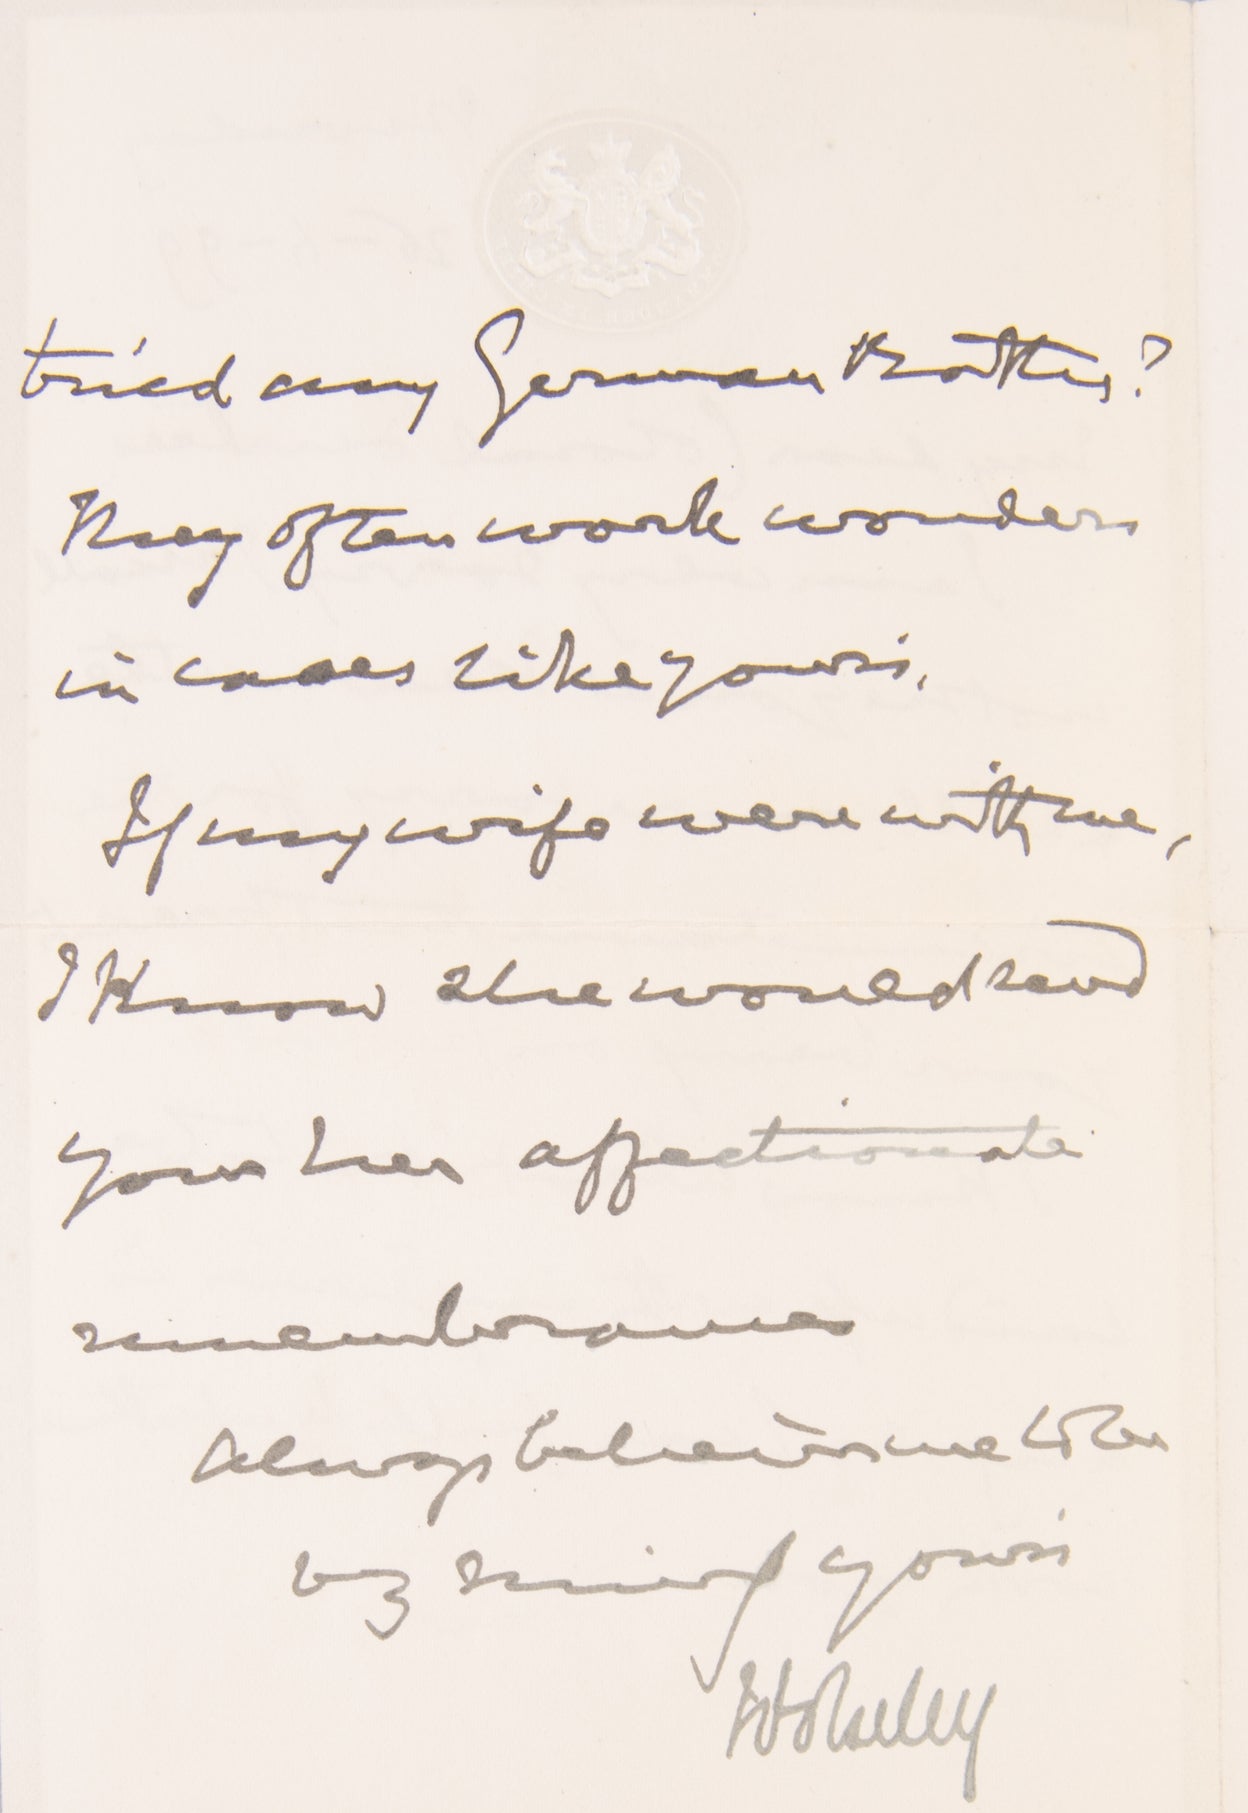 tried any German Baths?
They often work wonders
in cases like yours.
If my wife were with me,
I know she would send
you her affectionate
remembrances
Always believe me to be
vy sincely yours
Wolseley